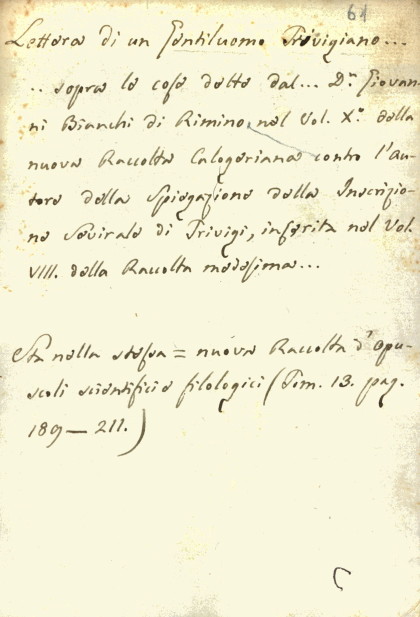 61
Lettera di un Gentiluomo Trivigiano...
.. sopra le cose dette dal... Dr. Giovan-
ni Bianchi di Rimino, nel Vol. X.º della
nuova Raccolta Calogeriana contro l'Au-
tore della Spiegazione della Inscrizio-
ne Sevirale di Trivigi, inserita nel Vol.
VIII. della Raccolta medesima...
Sta nella stessa = nuova Raccolta d'Opu-
scoli scientifici e filologici (Tom. 13. pag.
189 — 211.)